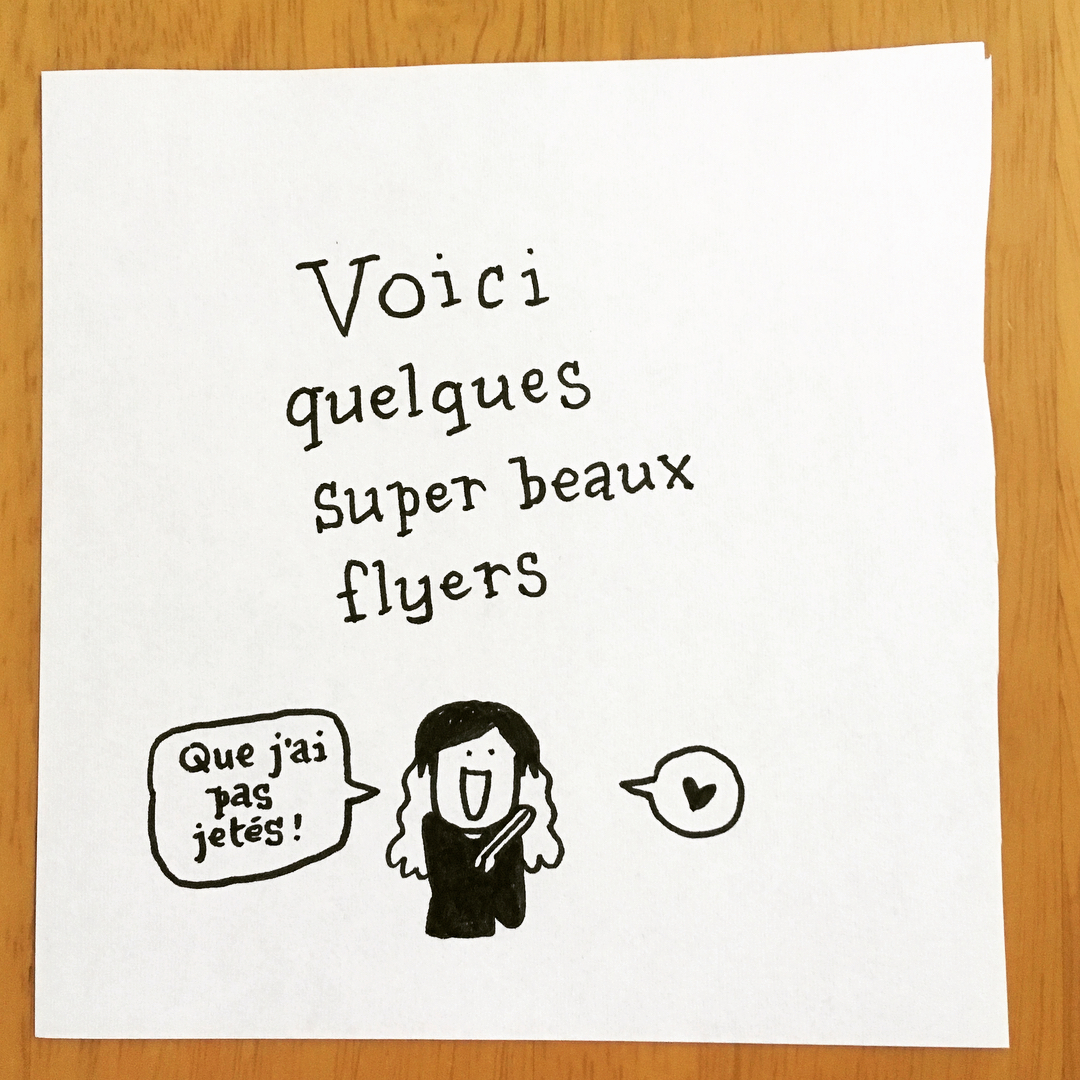 Voici
quelques
super beaux
flyers
Que j'ai
pas
jetés!